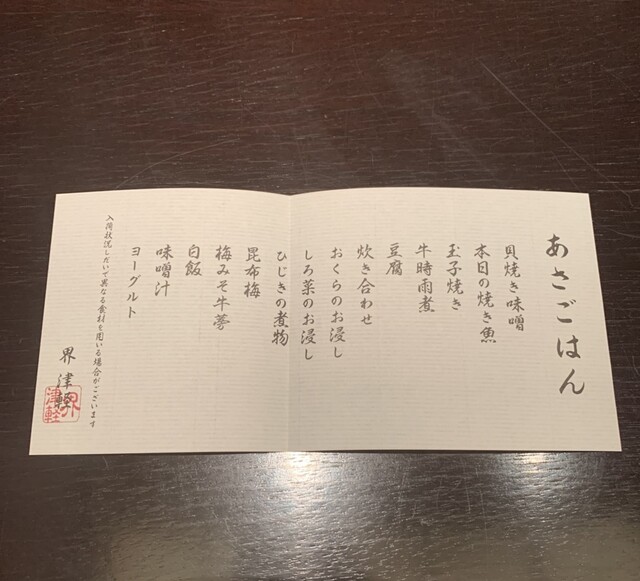 あさごはん
貝焼き味噌
本日の焼き魚
玉子焼き
牛時雨煮
豆腐
炊き合わせ
おくらのお浸し
しろ菜のお浸し
ひじきの煮物
昆布梅
梅みそ牛蒡
白飯
味噌汁
ヨーグルト
入荷状況しだいで異なる食材を用いる場合がございます
界 津軽
界津軽